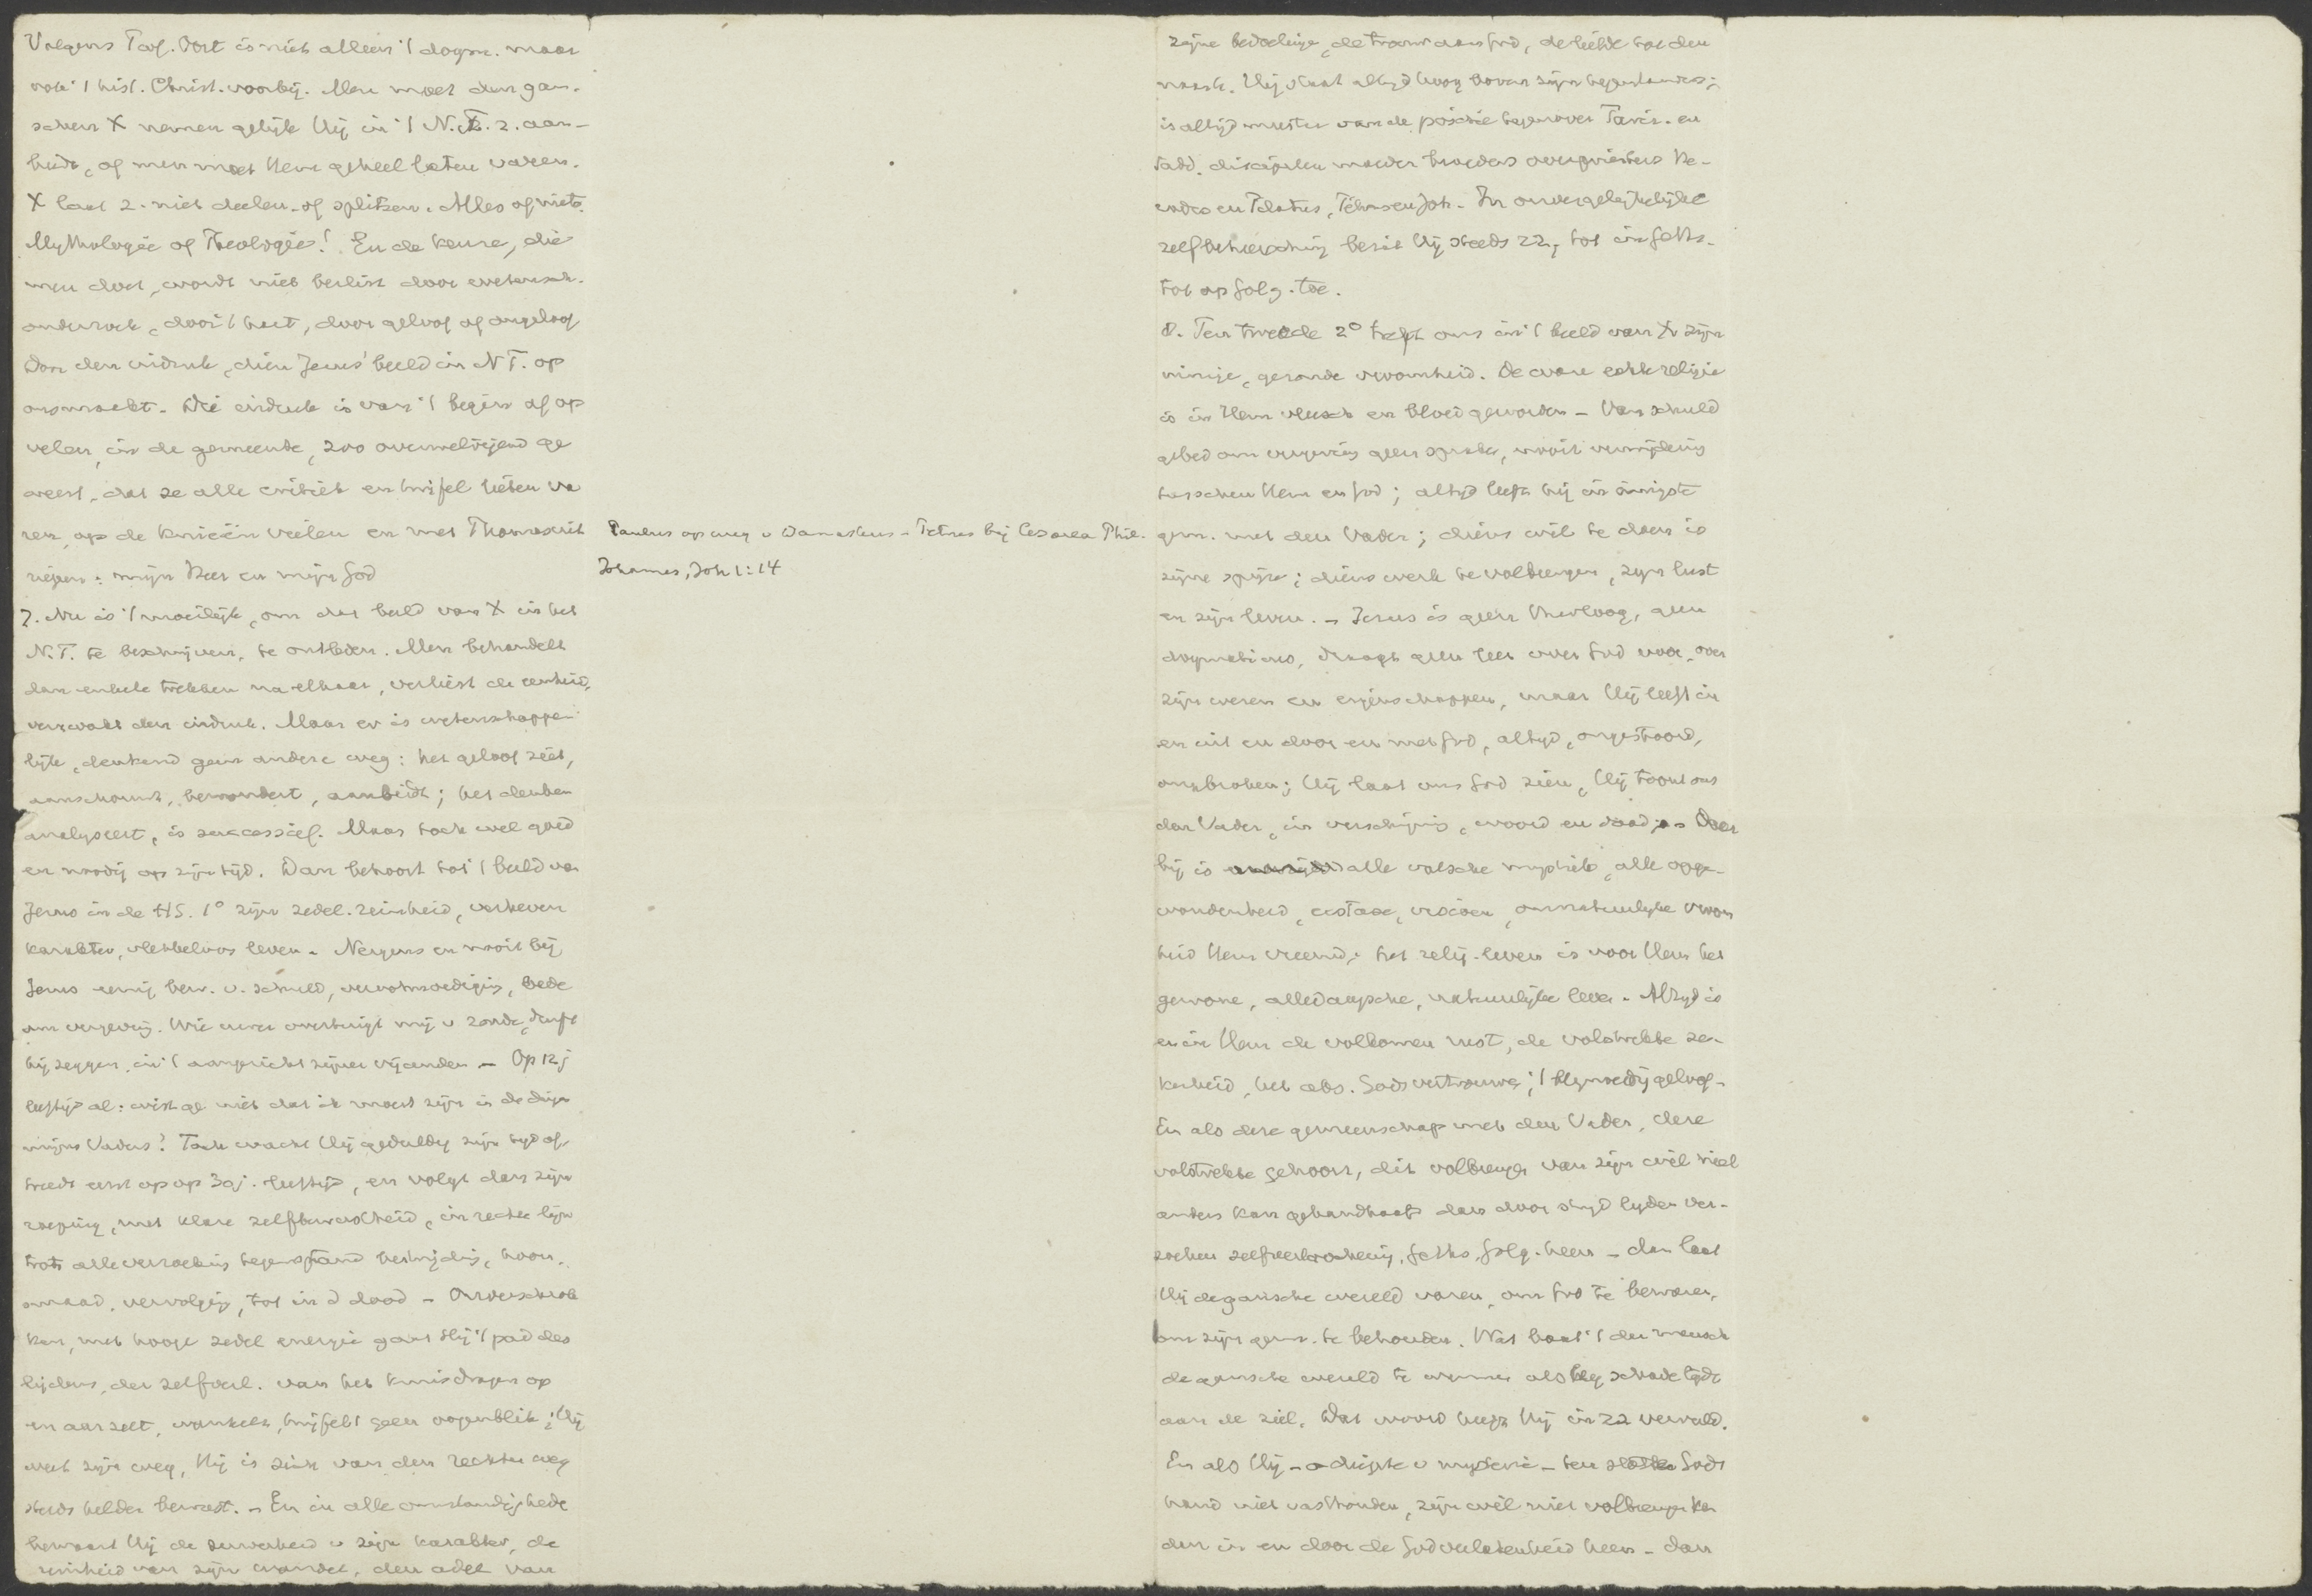 Volgens Prof. Oort is niet alleen 't dogm. maar
ook 't hist. Christ. voorbij. Men moet den gan-
schen X nemen gelijk Hij in 't N.T. z. aan-
biedt, of men moet Hem geheel laten varen.
X laat z. niet deelen of splitsen. Alles of niets.
Mythologie of Theologie! En de keuze, die
men doet, wordt niet beslist door wetensch.
onderzoek, door 't hart, door geloof of ongeloof
door den indruk, dien Jezus' beeld in N.T. op
ons maakt. Die indruk is van 't begin af op
velen, in de gemeente, zoo overweldigend ge
weest, dat ze alle critiek en twijfel lieten va
ren, op de knieën vielen en met Thomas uit
riepen: mijn Heer en mijn God
Paulus op weg v Damaskus - Petrus bij Cesarea Phil.
Johannes, Joh 1:14
7. Nu is 't moeilijk, om dat beeld van X in het
N.T. te beschrijven, te ontleden. Men behandelt
dan enkele trekken na elkaar, verliest de eenheid,
verzwakt den indruk. Maar er is wetenschappe-
lijk, denkend geen andere weg: het geloof ziet,
aanschouwt, bewondert, aanbidt; het denken
analyseert, is successief. Maar toch wel goed
en noodig op zijn tijd. Dan behoort tot 't beeld van
Jezus in de HS. 1° zijn zedel. reinheid, verheven
karakter, vlekkeloos leven. Nergens en nooit bij
Jezus eenig bew. v. schuld, verootmoediging, bede
om vergeving. Wie uwer overtuigt mij v zonde, durft
hij zeggen, in 't aangezicht zijner vijanden - Op 12 j
leeftijd al: wist ge niet dat ik moest zijn in de dingen
mijns Vaders? Toch wacht Hij geduldig zijn tijd af,
treedt eerst op op 30 j. leeftijd, en volgt dan zijn
roeping, met klare zelfbewustheid, in rechte lijn
trots alle verzoeking tegenstand bestrijding, hoon,
smaad, vervolging, tot in d dood - Onverschrok
ken, met hooge zedel energie gaat Hij 't pad des
lijdens, der zelfverl. van het kruisdragen op
en aarzelt, wankelt, twijfelt geen oogenblik; Hij
weet zijn weg, Hij is zich van den rechten weg
steeds helder bewust. - En in alle omstandigheden
bewaart Hij de zuiverheid v zijn karakter, de
reinheid van zijn wandel, den adel van
zijne bedoeling, de trouw aan God, de liefde tot den
naaste. Hij staat altijd hoog boven zijn tegenstanders;
is altijd meester van de positie tegenover Fariz. en
Sadd. discipelen moeder broeders overpriesters He-
rodes en Pilatus, Johannes. In onvergelijkelijke
zelfbeheersching bezit Hij steeds zz, tot in Geths.
tot op Golg. toe.
8. Ten tweede 2° treft ons in 't beeld van X zijn
innige, gezonde vroomheid. De ware echte religie
is in Hem vleesch en bloed geworden - Van schuld
gebed om vergeving geen sprake, nooit verwijdering
tusschen Hem en God; altijd leeft hij in innigste
gem. met den Vader; diens wil te doen is
zijne spijze; diens werk te volbrengen, zijn lust
en zijn leven. - Jezus is geen theoloog, geen
dogmaticus, draagt geen leer over God voor, over
zijn wezen en eigenschappen, maar Hij leeft in
en uit en door en met God, altijd, ongestoord,
onverbroken; Hij laat ons God zien, Hij toont ons
den Vader, in verschijning, woord en daad. - Daar
bij is alle valsche mystiek, alle opge-
wondenheid, extase, visioen, onnatuurlijke vroom
heid Hem vreemd; het relig. leven is voor Hem het
gewone, alledaagsche, natuurlijke leven. Altijd is
er in Hem de volkomen rust, de volstrekte ze-
kerheid, het abs. Godsvertrouwen; 't blijmoedig geloof.
En als deze gemeenschap met den Vader, deze
volstrekte gehoorz, dit volbrengen van zijn wil niet
anders kan gehandhaafd dan door strijd lijden ver-
zoeking zelfverloochening, Geths, Golg. heen - dan laat
Hij de gansche wereld varen, om God te bewaren,
om zijn gem. te behouden. Wat baat 't den mensch
de gansche wereld te winnen als hij schade lijdt
aan de ziel. Dat woord heeft Hij in zz vervuld.
En als Hij - o diepte v mysterie - ten slotte Gods
hand niet vasthouden, zijn wil niet volbrengen kan
dan in en door de Godverlatenheid heen - dan